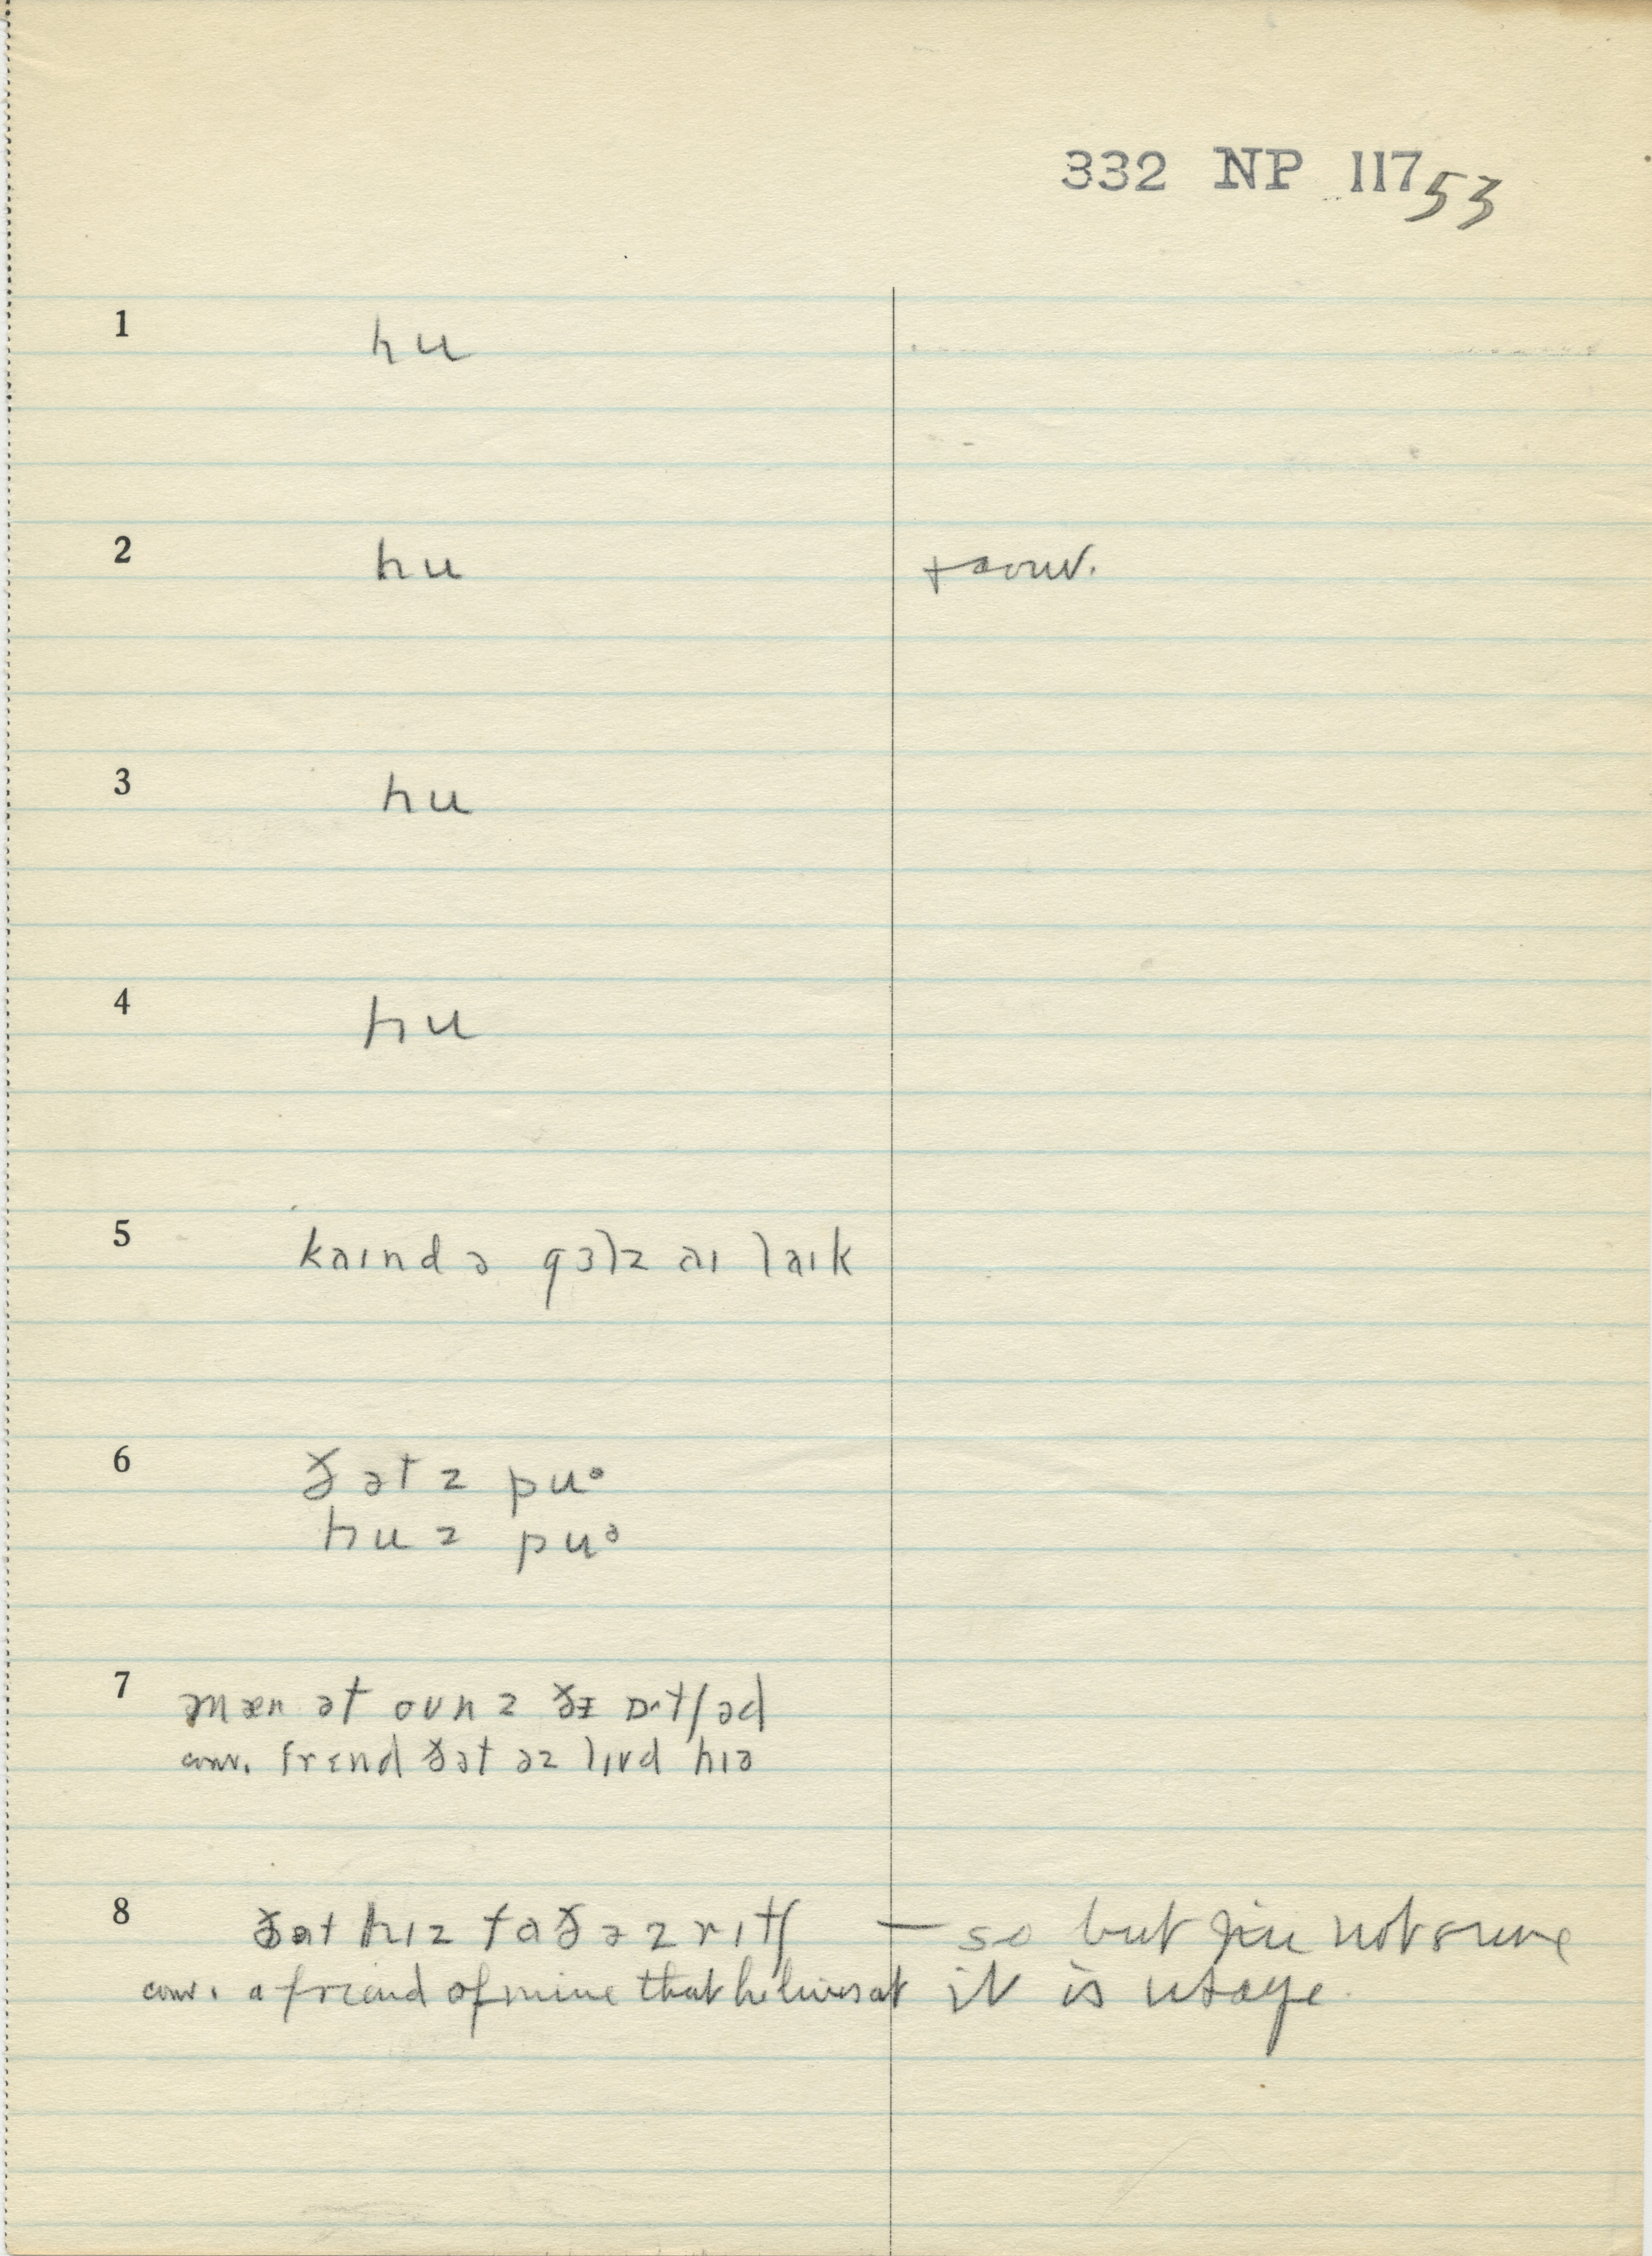 332 NP 117 53
1 hu
2 hu + conv.
3 hu
4 hu
5 kaɪnd ə gɜlz aɪ laɪk
6 ðət z puᵊ
hu z puᵊ
7 ə mæn ət oʊnz ðɪ ɒrtʃəd
conv. frɛnd ðət əz lɪvd hɪə
8 ðət hɪz fɑðəz rɪtʃ — so but I'm not sure
conv. a friend of mine that he lives at it is usage.